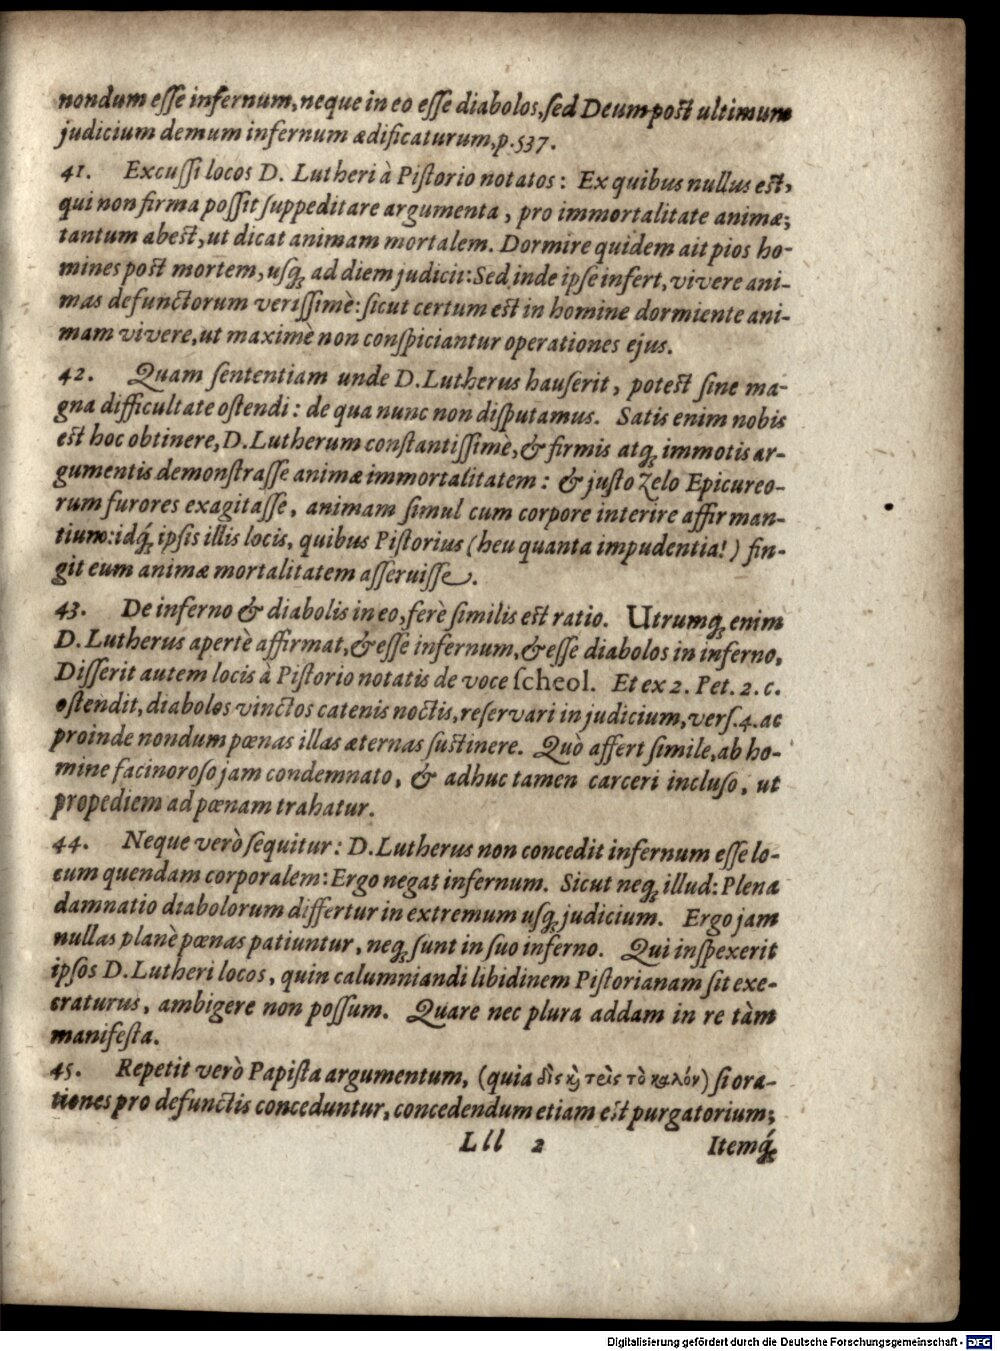 nondum eſſe infernum, neque in eo eſſe diabolos, ſed Deum poſt ultimum
judicium demum infernum ædificaturum, p. 537.
41. Excuſſi locos D. Lutheri à Piſtorio notatos: Ex quibus nullus eſt,
qui non firma poſſit ſuppeditare argumenta, pro immortalitate animæ;
tantum abeſt, ut dicat animam mortalem. Dormire quidem ait pios ho-
mines poſt mortem, uſq; ad diem judicii: Sed inde ipſe infert, vivere ani-
mas defunctorum veriſſimè: ſicut certum eſt in homine dormiente ani-
mam vivere, ut maximè non conſpiciantur operationes ejus.
42. Quam ſententiam unde D. Lutherus hauſerit, poteſt ſine ma-
gna difficultate oſtendi: de qua nunc non diſputamus. Satis enim nobis
eſt hoc obtinere, D. Lutherum conſtantiſſimè, & firmis atq; immotis ar-
gumentis demonſtraſſe animæ immortalitatem: & juſto zelo Epicureo-
rum furores exagitaſſe, animam ſimul cum corpore interire affirman-
tium: idq́; ipſis illis locis, quibus Piſtorius (heu quanta impudentia!) fin-
git eum animæ mortalitatem aſſeruiſſe.
43. De inferno & diabolis in eo, ferè ſimilis eſt ratio. Utrumq; enim
D. Lutherus apertè affirmat, & eſſe infernum, & eſſe diabolos in inferno.
Diſſerit autem locis à Piſtorio notatis de voce ſcheol. Et ex 2. Pet. 2. c.
oſtendit, diabolos vinctos catenis noctis, reſervari in judicium, verſ. 4. ac
proinde nondum pœnas illas æternas ſuſtinere. Quò affert ſimile, ab ho-
mine facinoroſo jam condemnato, & adhuc tamen carceri incluſo, ut
propediem ad pœnam trahatur.
44. Neque verò ſequitur: D. Lutherus non concedit infernum eſſe lo-
cum quendam corporalem: Ergo negat infernum. Sicut neq; illud: Plena
damnatio diabolorum differtur in extremum uſq; judicium. Ergo jam
nullas planè pœnas patiuntur, neq; ſunt in ſuo inferno. Qui inſpexerit
ipſos D. Lutheri locos, quin calumniandi libidinem Piſtorianam ſit exe-
craturus, ambigere non poſſum. Quare nec plura addam in re tàm
manifeſta.
45. Repetit verò Papiſta argumentum, (quia δὶς ϗ̀ τεὶς τὸ καλόν) ſi ora-
tiones pro defunctis conceduntur, concedendum etiam eſt purgatorium;
Lll 2 Itemq́;
Digitalisierung gefördert durch die Deutsche Forschungsgemeinschaft - DFG